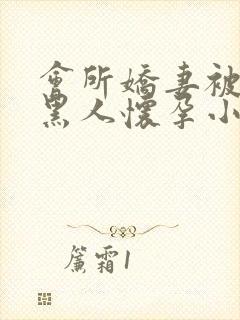 會所嬌妻被
黑人懷孕小
簾霜1